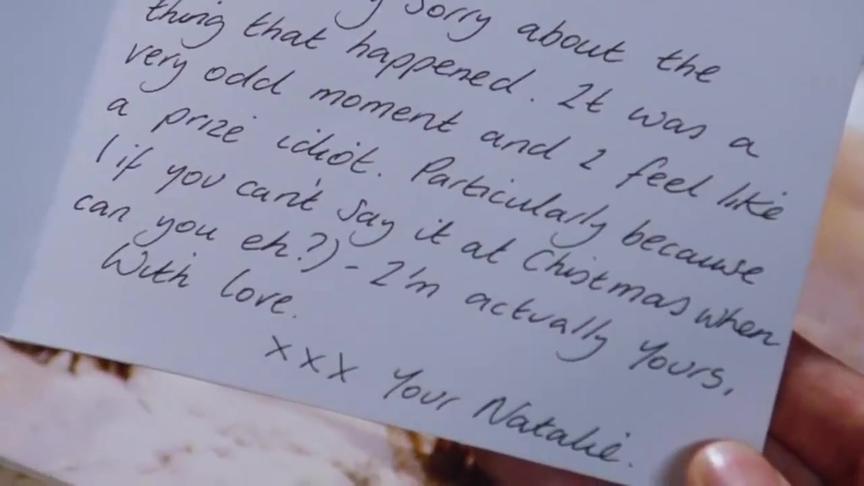 sorry about the
thing that happened. It was a
very odd moment and I feel like
a prize idiot. Particularly because
(if you can't say it at Chistmas when
can you eh?) - I'm actually yours,
With love.
xxx Your Natalie.